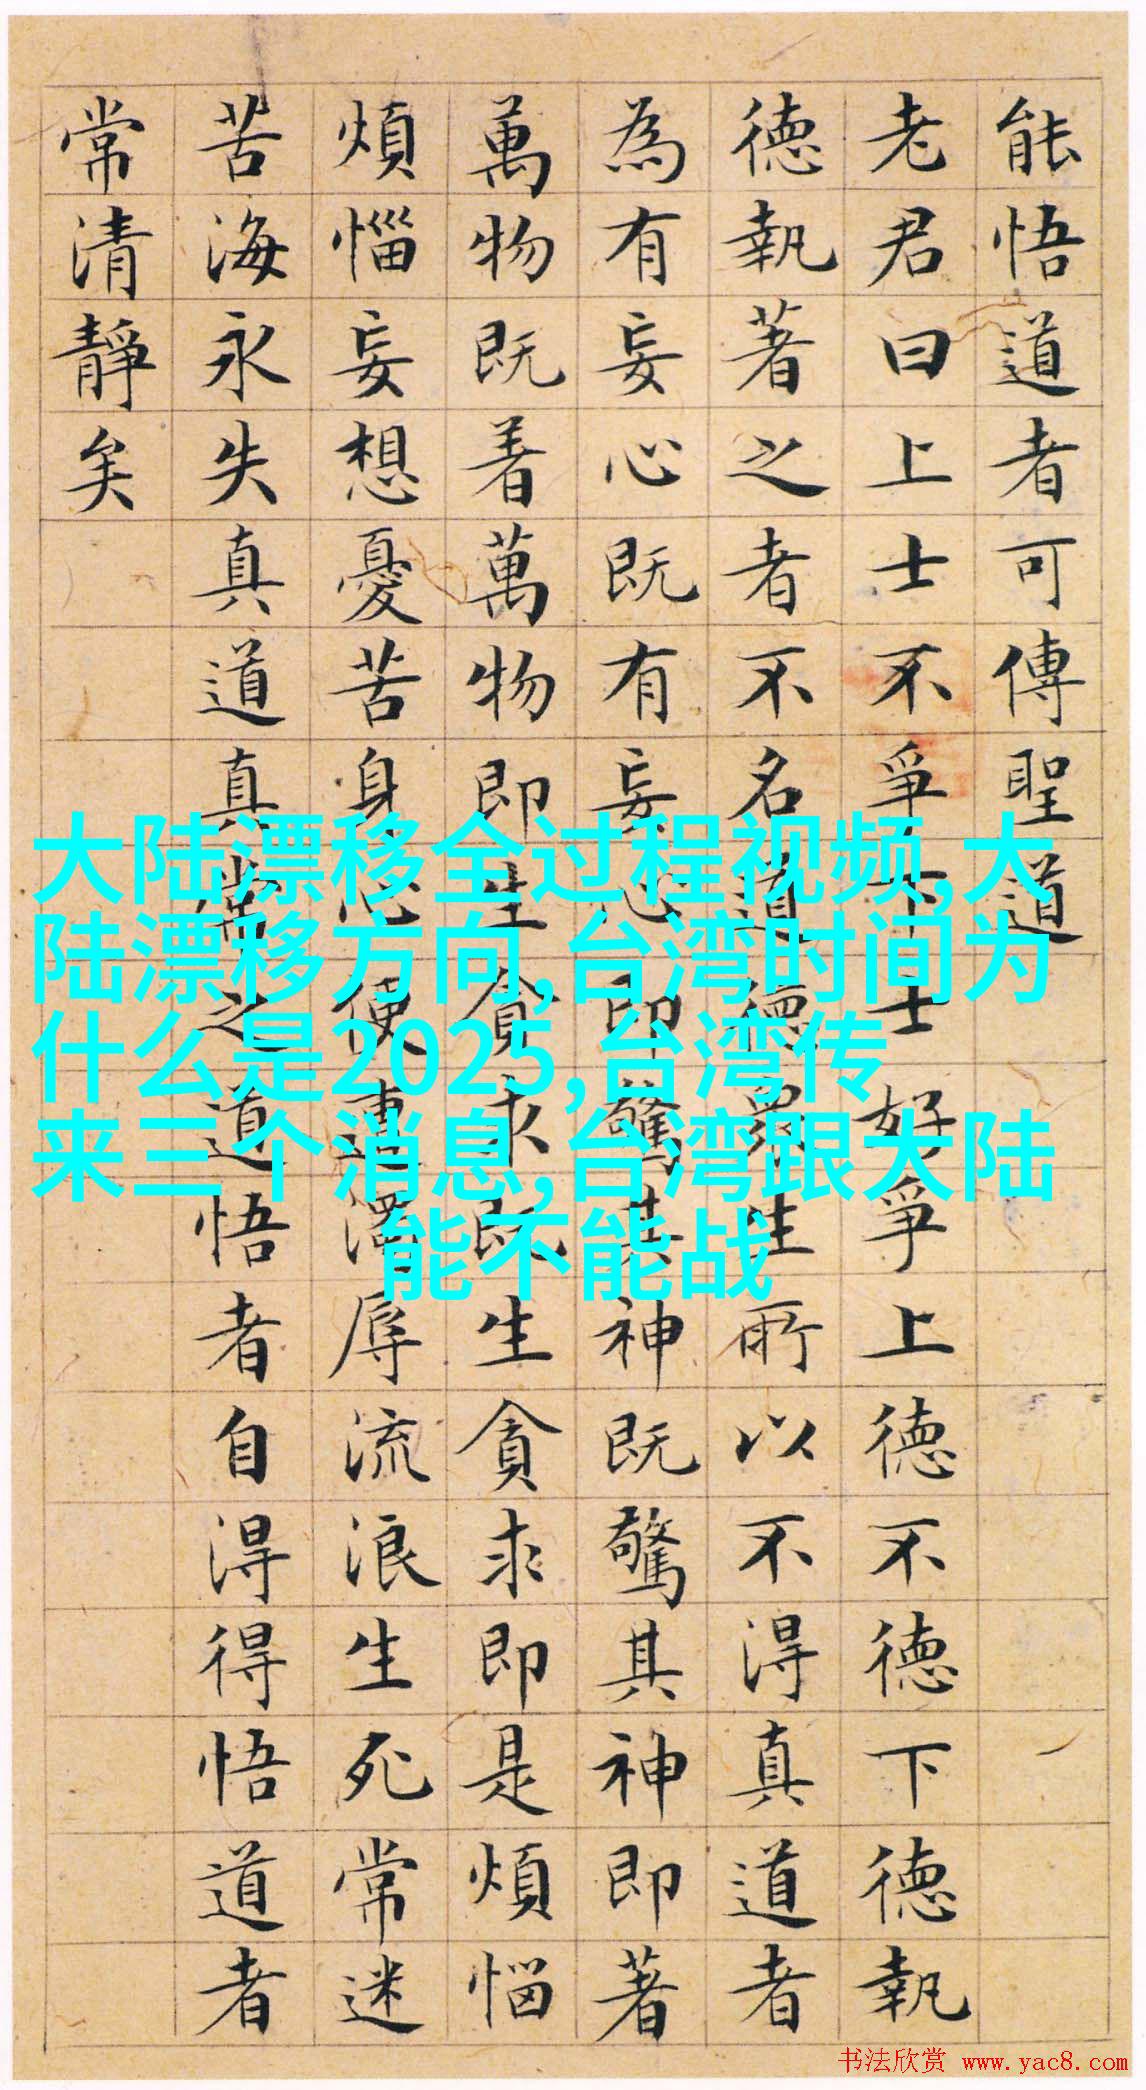 能悟道者可傳聖道
老君曰上士不爭下士好爭上德不德下德執
德執著之者不名道德眾生所以不得真道者
為有妄心既有妄心即驚其神既驚其神即著
萬物既着萬物即生貪求既生貪求即是煩惱
煩惱妄想憂苦身心便遭濁辱流浪生死常迷
苦海永失真道真常之道悟者自得得悟道者
常清靜矣
大陆漂移全过程视频,大
陆漂移方向,台湾时间为
什么是2025,台湾传
来三个消息,台湾跟大陆
能不能战
书法欣赏 www.yac8.com